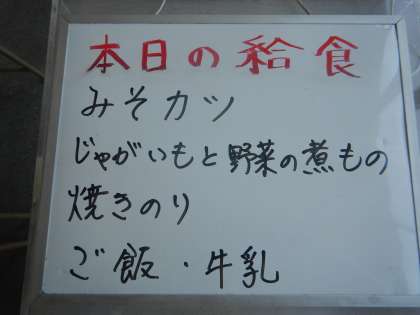 本日の給食
みそカツ
じゃがいもと野菜の煮もの
焼きのり
ご飯・牛乳